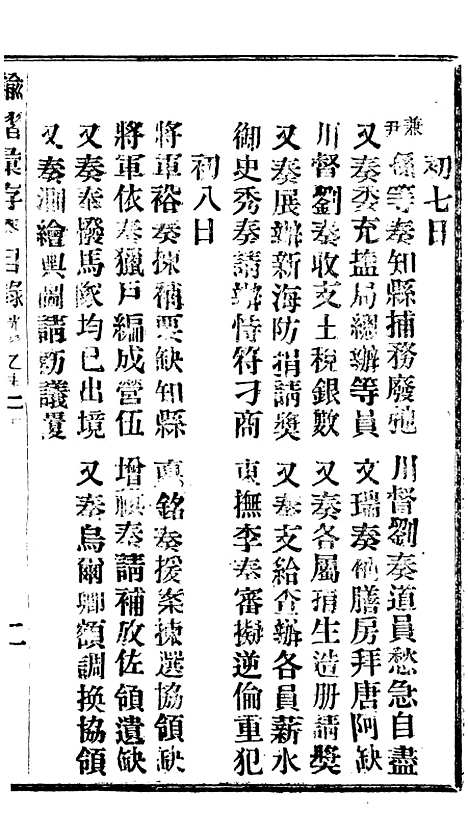 初七日
兼尹孫等奏知縣捕務廢弛
川督劉奏道員愁急自盡
又奏委充鹽局總辦等員
文瑞奏備膳房拜唐阿缺
川督劉奏收支土稅銀數
又奏各屬捐生造册請獎
又奏展辦新海防捐請獎
又奏支給查辦各員薪水
御史秀奏請辦恃符刁商
東撫李奏審擬逆倫重犯
初八日
將軍裕奏揀補要缺知縣
惠銘奏援案揀選協領缺
將軍依奏獵戶編成營伍
增祺奏請補放佐領遺缺
又奏奉撥馬隊均已出境
又奏烏爾卿額調換協領
又奏測繪輿圖請飭議覆
諭摺彙存 目錄
二